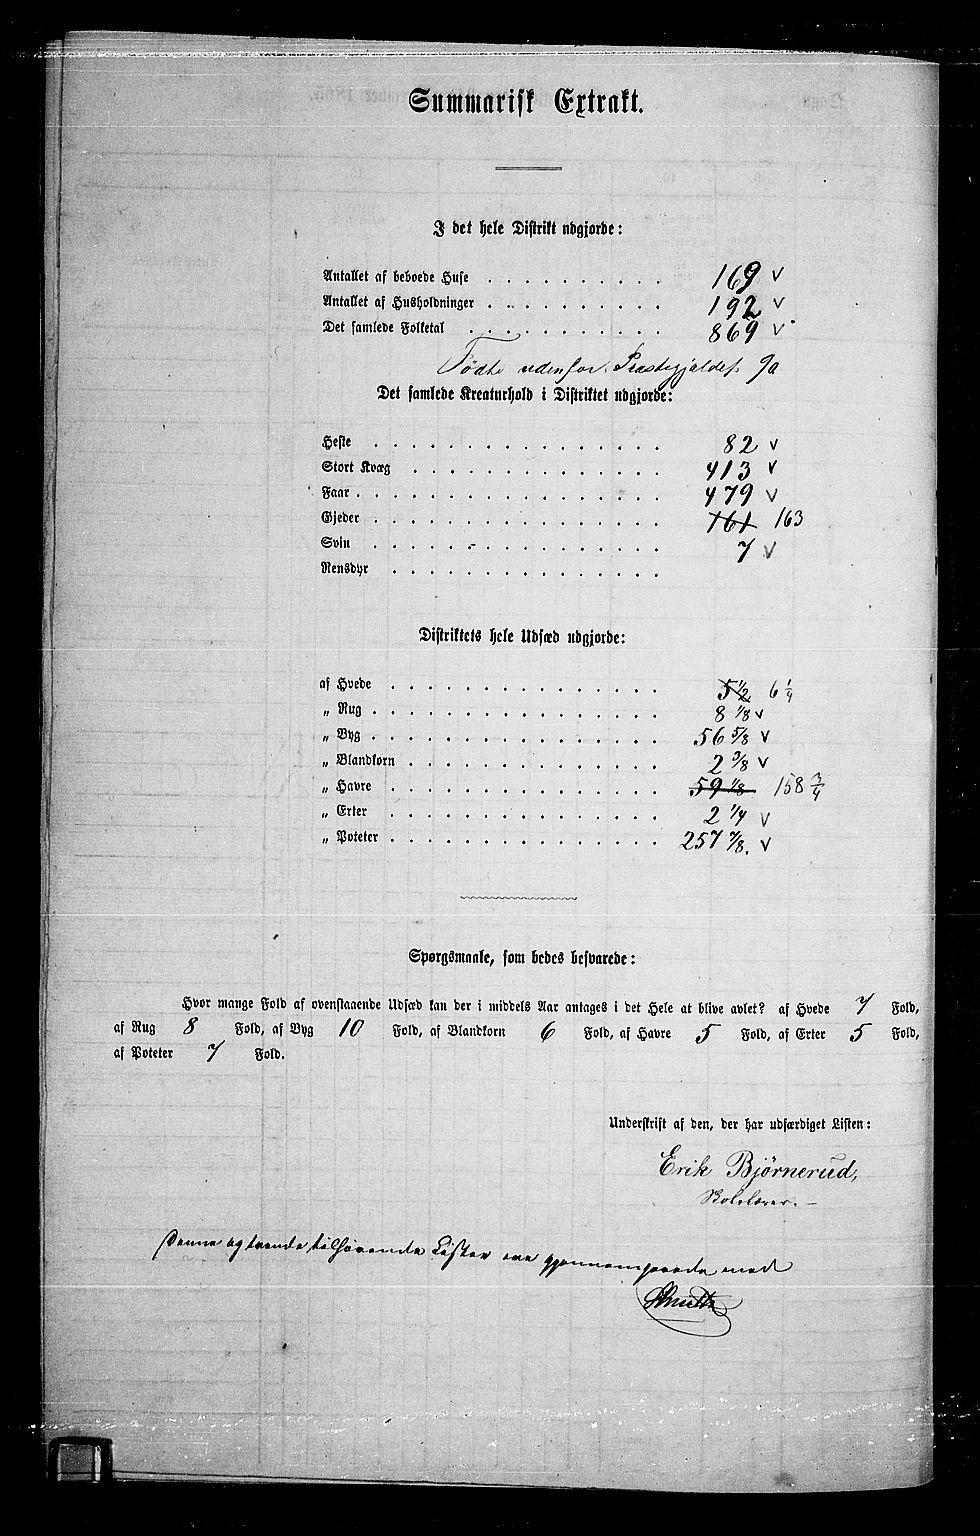 Summarisk Extrakt.
I det hele Distrikt udgjorde:
Antallet af beboede Huse . . . . . . . . . . 169 v
Antallet af Husholdninger . . . . . . . . . . 192 v
Det samlede Folketal . . . . . . . . . . 869 v
Fødte udenfor Præstegjeldet 90
Det samlede Kreaturhold i Distriktet udgjorde:
Heste . . . . . . . . . . 82 v
Stort Kvæg . . . . . . . . . . 413 v
Faar . . . . . . . . . . 479 v
Gjeder . . . . . . . . . . 161 163
Svin . . . . . . . . . . 7 v
Rensdyr . . . . . . . . . .
Distriktets hele Udsæd udgjorde:
af Hvede . . . . . . . . . . 5 1/2 6 1/4
„ Rug . . . . . . . . . . 8 1/8 v
„ Byg . . . . . . . . . . 56 5/8 v
„ Blandkorn . . . . . . . . . . 2 3/8 v
„ Havre . . . . . . . . . . 59 1/8 158 3/4
„ Erter . . . . . . . . . . 2 1/4 v
„ Poteter . . . . . . . . . . 257 7/8. v
Spørgsmaale, som bedes besvarede:
Hvor mange Fold af ovenstaaende Udsæd kan der i middels Aar antages i det Hele at blive avlet? af Hvede 7 Fold,
af Rug 8 Fold, af Byg 10 Fold, af Blandkorn 6 Fold, af Havre 5 Fold, af Erter 5 Fold,
af Poteter 7 Fold.
Underskrift af den, der har udfærdiget Listen:
Erik Bjørnerud,
Skolelærer.
Denne og tvende tilhørende Lister ere gjennemgaaede med